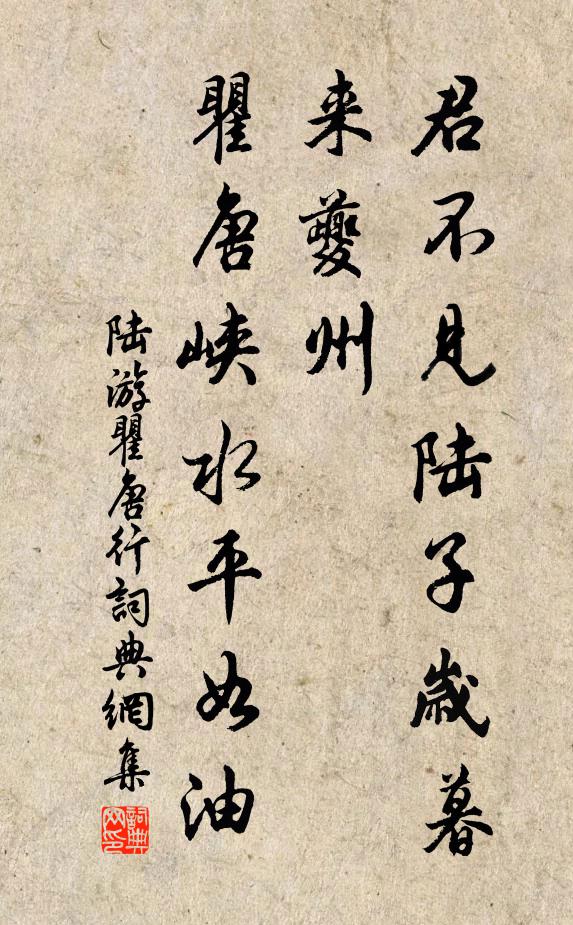 君不见陆子歳暮
来夔州
瞿唐峡水平如油
陆游瞿唐行詞典網集
詞典网印